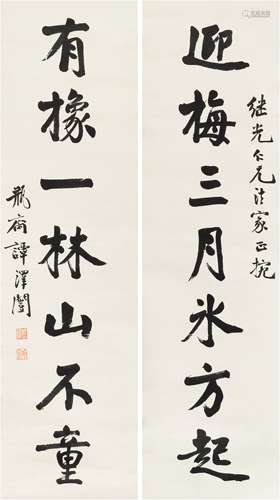 继光仁兄法家正挽
迎梅三月氷方起
有橡一林山不童
瓶斋譚澤闓